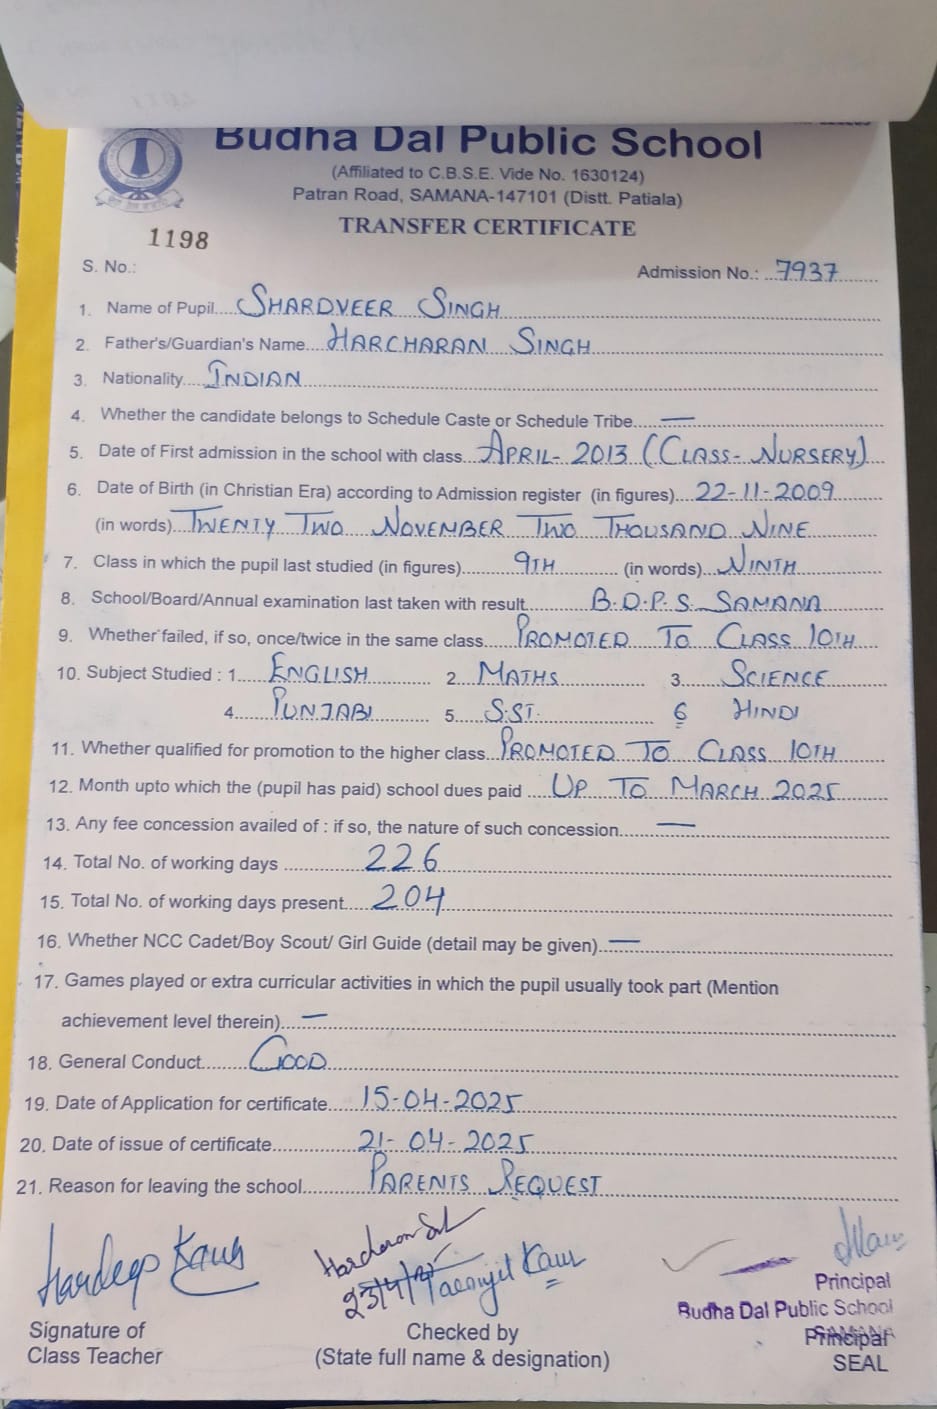 Budha Dal Public School
(Affiliated to C.B.S.E. Vide No. 1630124)
Patran Road, SAMANA-147101 (Distt. Patiala)
TRANSFER CERTIFICATE
1198
S. No.:
Admission No.: 7937
1. Name of Pupil SHARDVEER SINGH
2. Father's/Guardian's Name HARCHARAN SINGH
3. Nationality INDIAN
4. Whether the candidate belongs to Schedule Caste or Schedule Tribe —
5. Date of First admission in the school with class APRIL- 2013 (CLASS- NURSERY)
6. Date of Birth (in Christian Era) according to Admission register (in figures) 22-11-2009
(in words) TWENTY TWO NOVEMBER TWO THOUSAND NINE
7. Class in which the pupil last studied (in figures) 9TH (in words) NINTH
8. School/Board/Annual examination last taken with result B.D.P.S. SAMANA
9. Whether failed, if so, once/twice in the same class PROMOTED TO CLASS 10TH
10. Subject Studied : 1 ENGLISH 2. MATHS 3. SCIENCE
4. PUNJABI 5. S.ST. 6 HINDI
11. Whether qualified for promotion to the higher class PROMOTED TO CLASS 10TH
12. Month upto which the (pupil has paid) school dues paid UP TO MARCH 2025
13. Any fee concession availed of : if so, the nature of such concession —
14. Total No. of working days 226
15. Total No. of working days present 204
16. Whether NCC Cadet/Boy Scout/ Girl Guide (detail may be given) —
17. Games played or extra curricular activities in which the pupil usually took part (Mention
achievement level therein) —
18. General Conduct GOOD
19. Date of Application for certificate 15-04-2025
20. Date of issue of certificate 21-04-2025
21. Reason for leaving the school PARENTS REQUEST
Hardeep Kaur
Kaur
Principal
Budha Dal Public School
SAMANA
Signature of
Class Teacher
Checked by
(State full name & designation)
Principal
SEAL